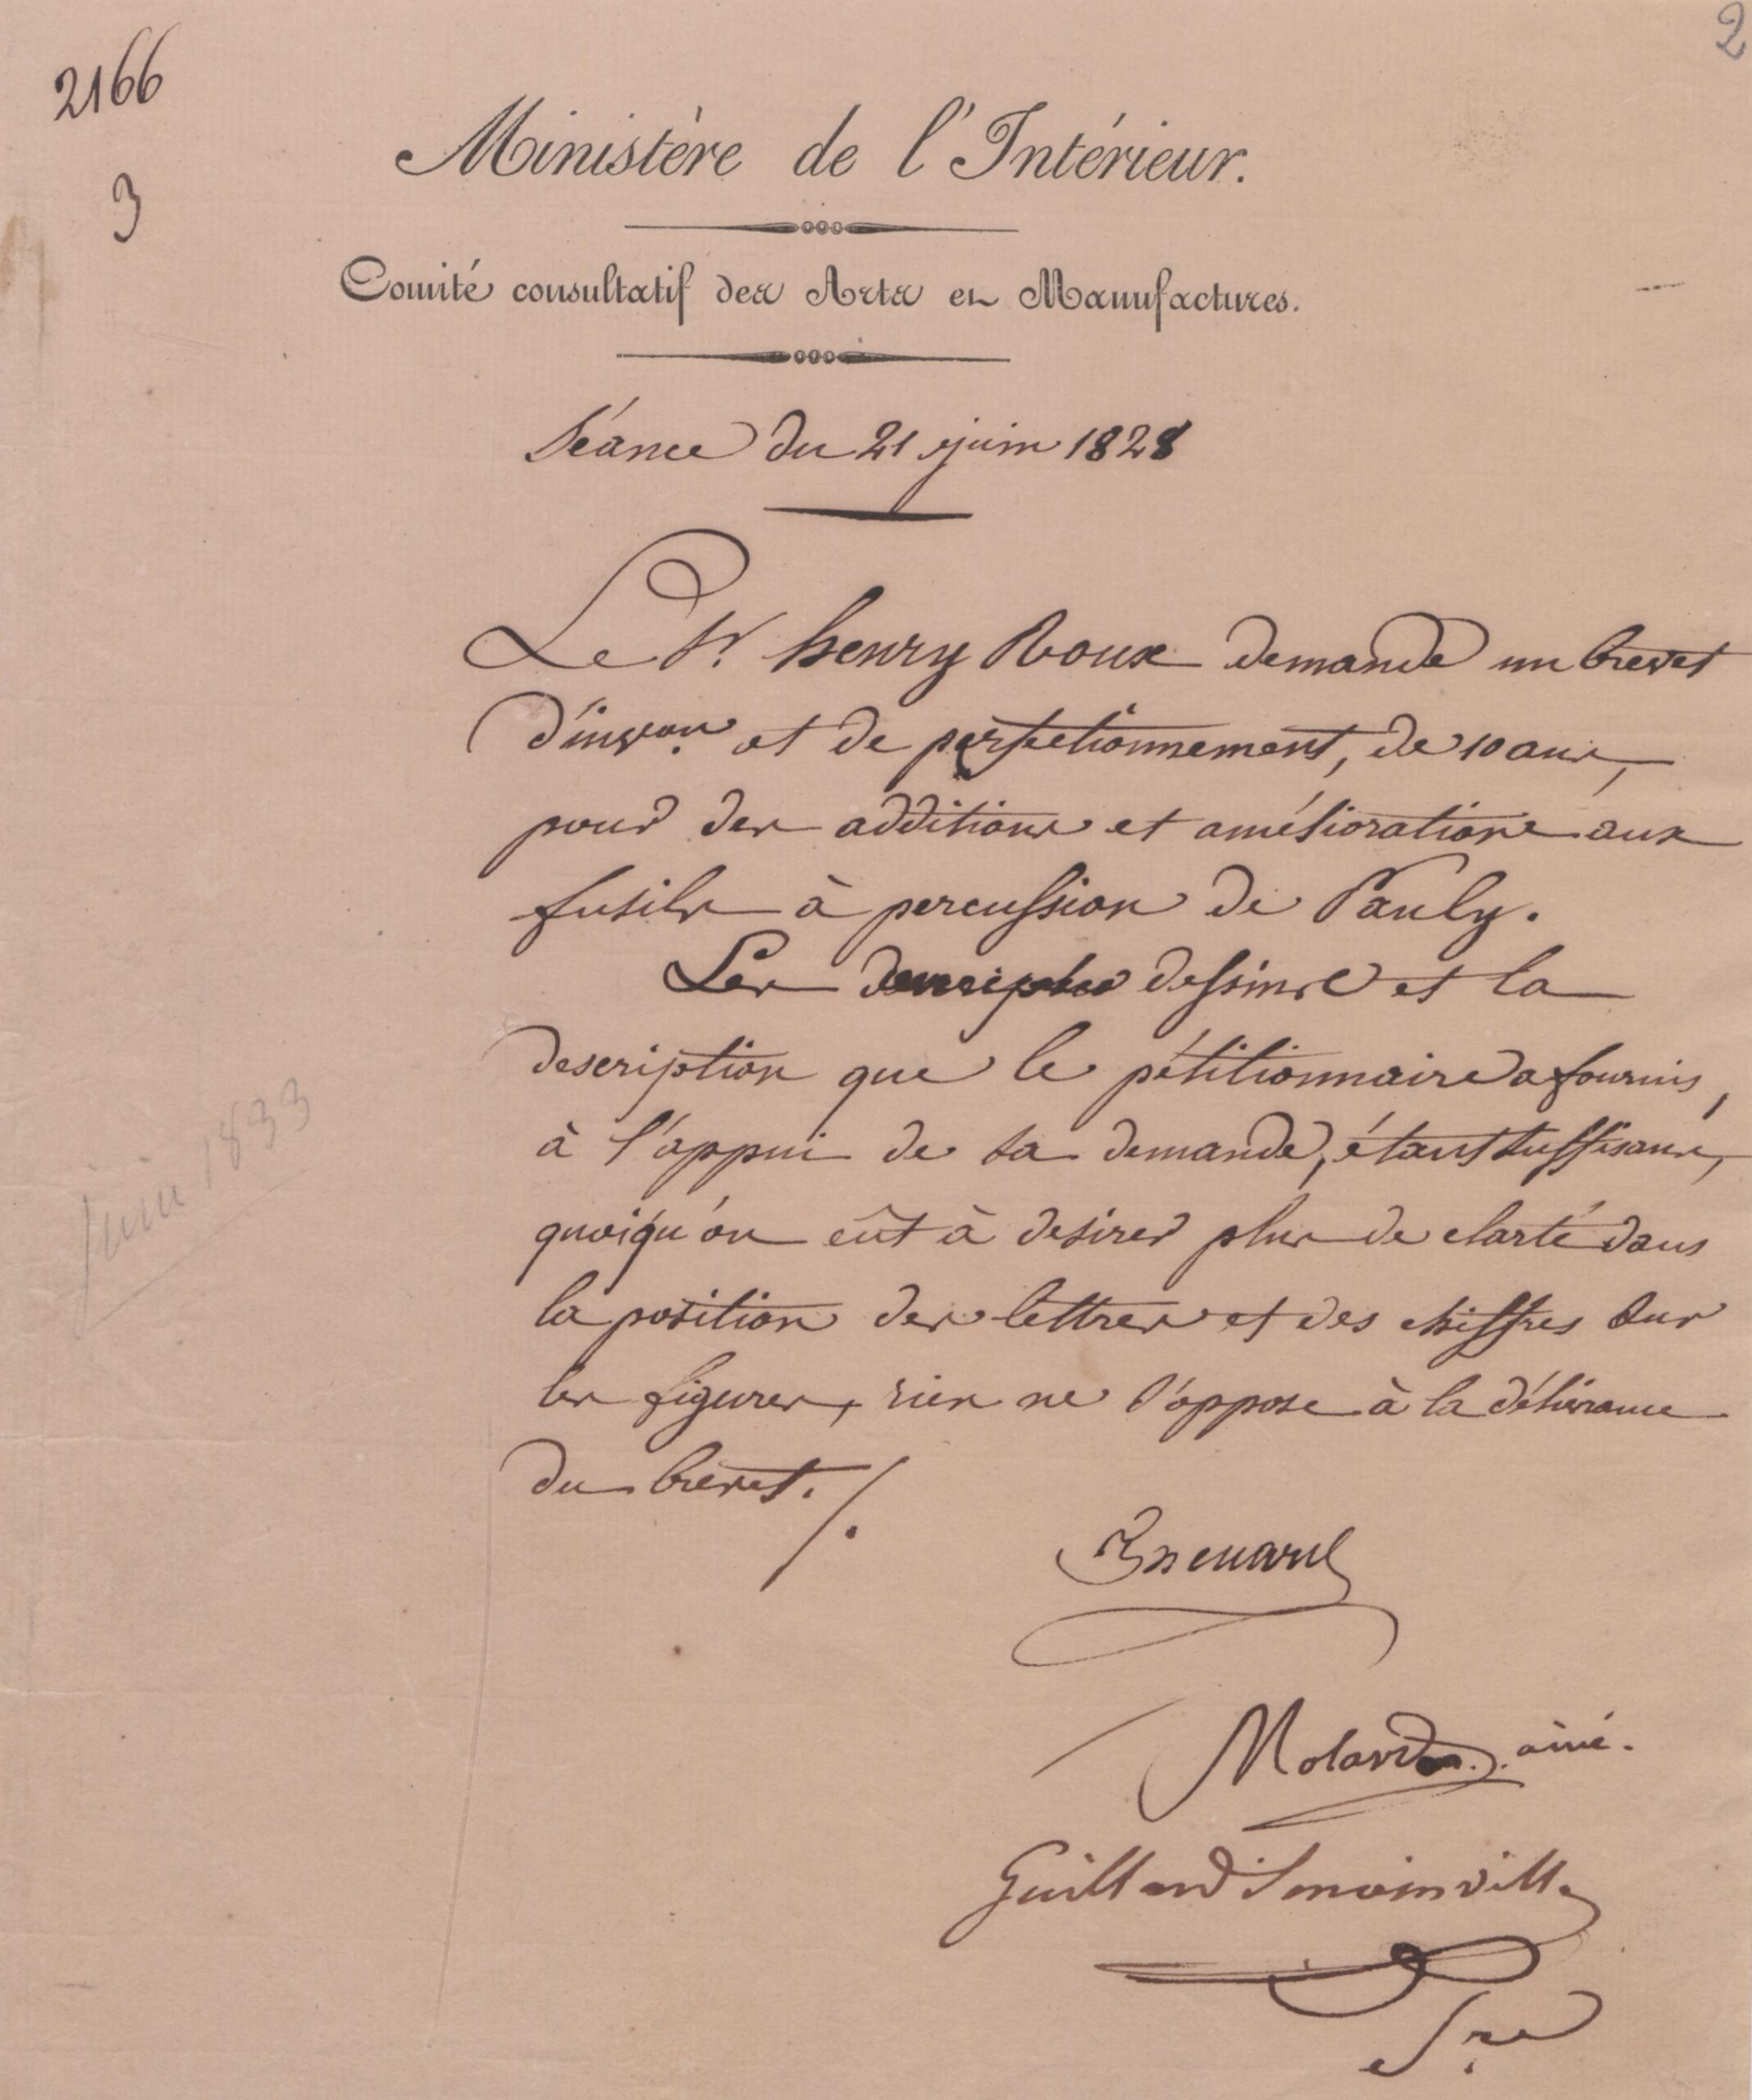 2166
2
3
Ministère de l'Intérieur.
Comité consultatif des Arts et Manufactures.
Séance du 21 juin 1828
Le Sr. henry Roux demande un brevet
d'inv.on et de perfectionnement, de 10 ans,
pour des additions et améliorations aux
fusils à percussion de Pauly.
Les dessins et la
description que le pétitionnaire a fournis,
à l'appui de sa demande, étant suffisans,
quoiqu'on eût à desirer plus de clarté dans
la position des lettres et des chiffres sur
les figures, rien ne s'oppose à la délivrance
du brevet. /.
juin 1833
Molard ainé.
Guillard Senainville
Sre